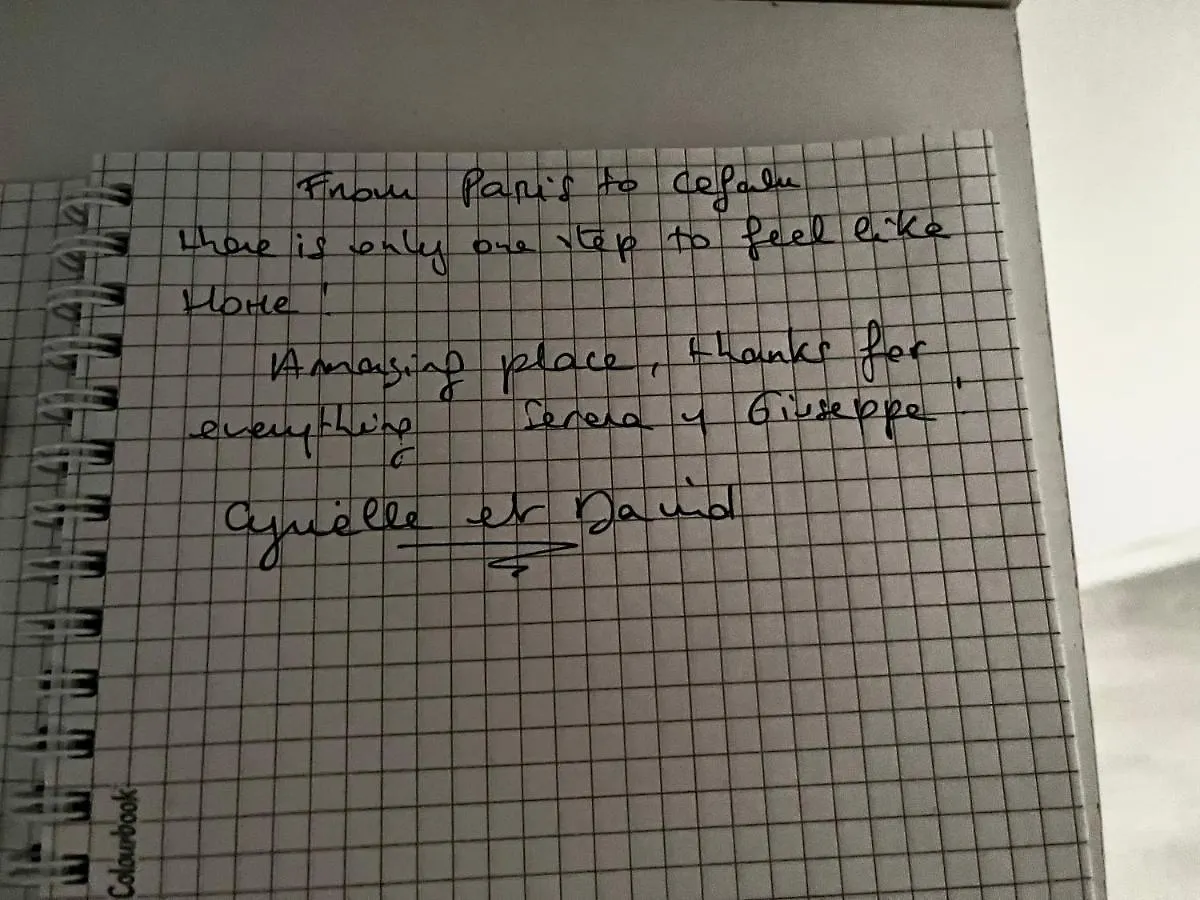 From Paris to Cefalu
there is only one step to feel like
Home !
Amazing place, thanks for
everything Serena y Giuseppe !
Cyrielle et David
Colourbook